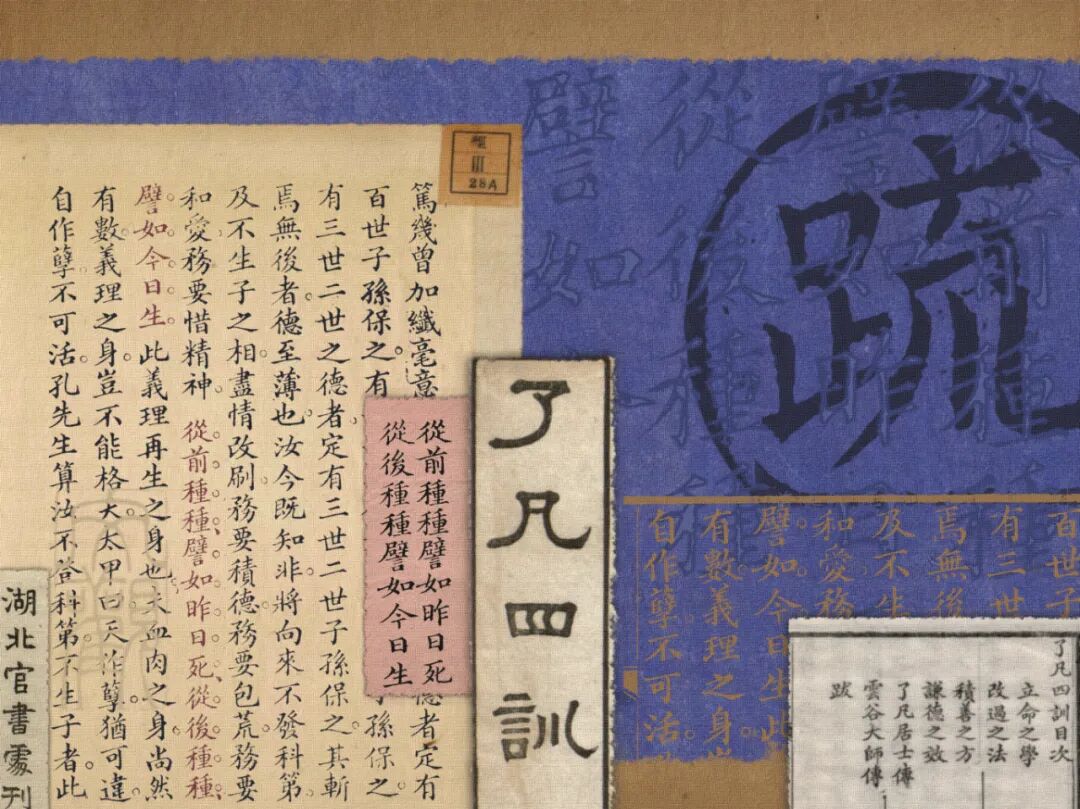 從前種種
譬如昨
從後種種
譬如
疏
百世子
有三世
焉無後
及不生
和愛務
譬如。今日生此
有數。義理之身
自作孽不可活。
了凡四訓目次
立命之學
改過之法
積善之方
謙德之效
了凡居士傳
雲谷大師傳
跋
了凡四訓
28A
從前種種譬如昨日死
從後種種譬如今日生
篤幾曾加纖毫意
德者定有
百世子孫保之。有
子孫保之。
有三世二世之德者。定有三世二世子孫保之。其斬
焉無後者。德至薄也。汝今既知非。將向來不發科第
及不生子之相。盡情改刷。務要積德。務要包荒。務要
和愛。務要惜精神 從前種種、譬如昨日死、從後種種、
譬如。今日生。此義理再生之身也。夫血肉之身。尚然
有數。義理之身。豈不能格天。太甲曰。天作孽。猶可違。
自作孽。不可活。孔先生算汝不登科第。不生子者。此
湖北官書處刊